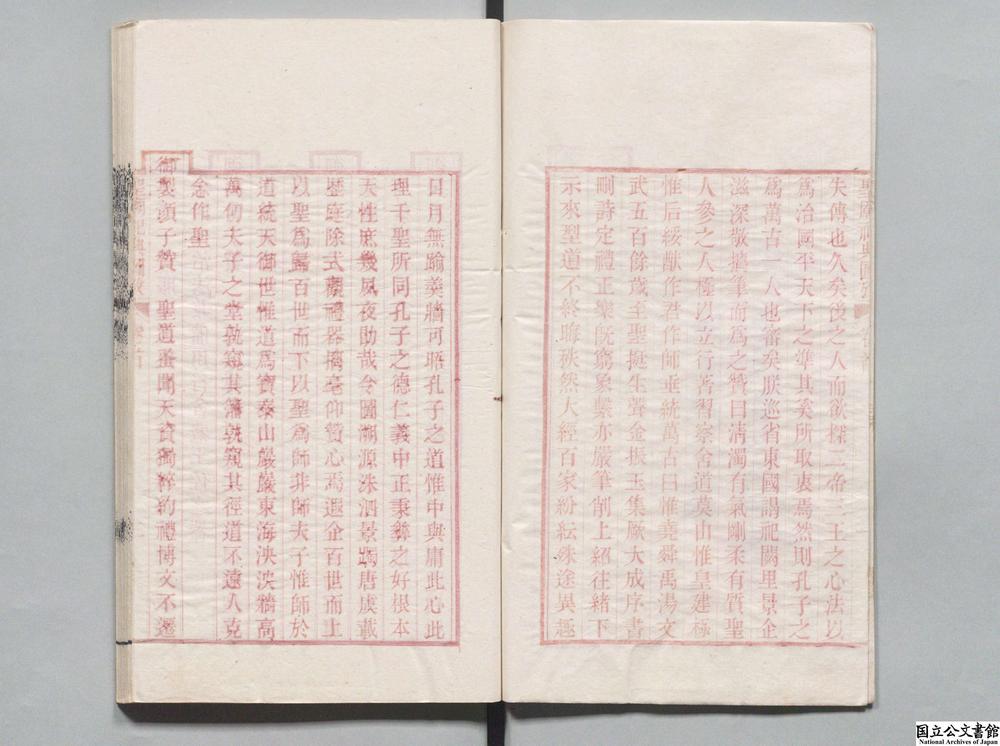 失傳也久矣後之人而欲探二帝三王之心法以
爲治國平天下之準其奚所取衷焉然則孔子之
爲萬古一人也審矣朕巡省東國謁祀闕里景企
滋深敬摛筆而爲之贊曰清濁有氣剛柔有質聖
人參之人極以立行著習察舍道莫由惟皇建極
惟后綏猷作君作師垂統萬古曰惟堯舜禹湯文
武五百餘歲至聖挺生聲金振玉集厥大成序書
刪詩定禮正樂旣窮象繫亦嚴筆削上紹往緒下
示來型道不終晦秩然大經百家紛紜殊途異趣
日月無踰羹牆可晤孔子之道惟中與庸此心此
理千聖所同孔子之德仁義中正秉彝之好根本
天性庶幾夙夜勖哉令圖溯源洙泗景躅唐虞載
歷庭除式觀禮器摛毫仰贊心焉遐企百世而上
以聖爲歸百世而下以聖爲師非師夫子惟師於
道統天御世惟道爲寶泰山巖巖東海泱泱牆高
萬仞夫子之堂孰窺其藩孰窺其徑道不遠人克
念作聖
御製顏子贊 聖道蚤聞天資獨粹約禮博文不遷
国立公文書館
National Archives of Japan